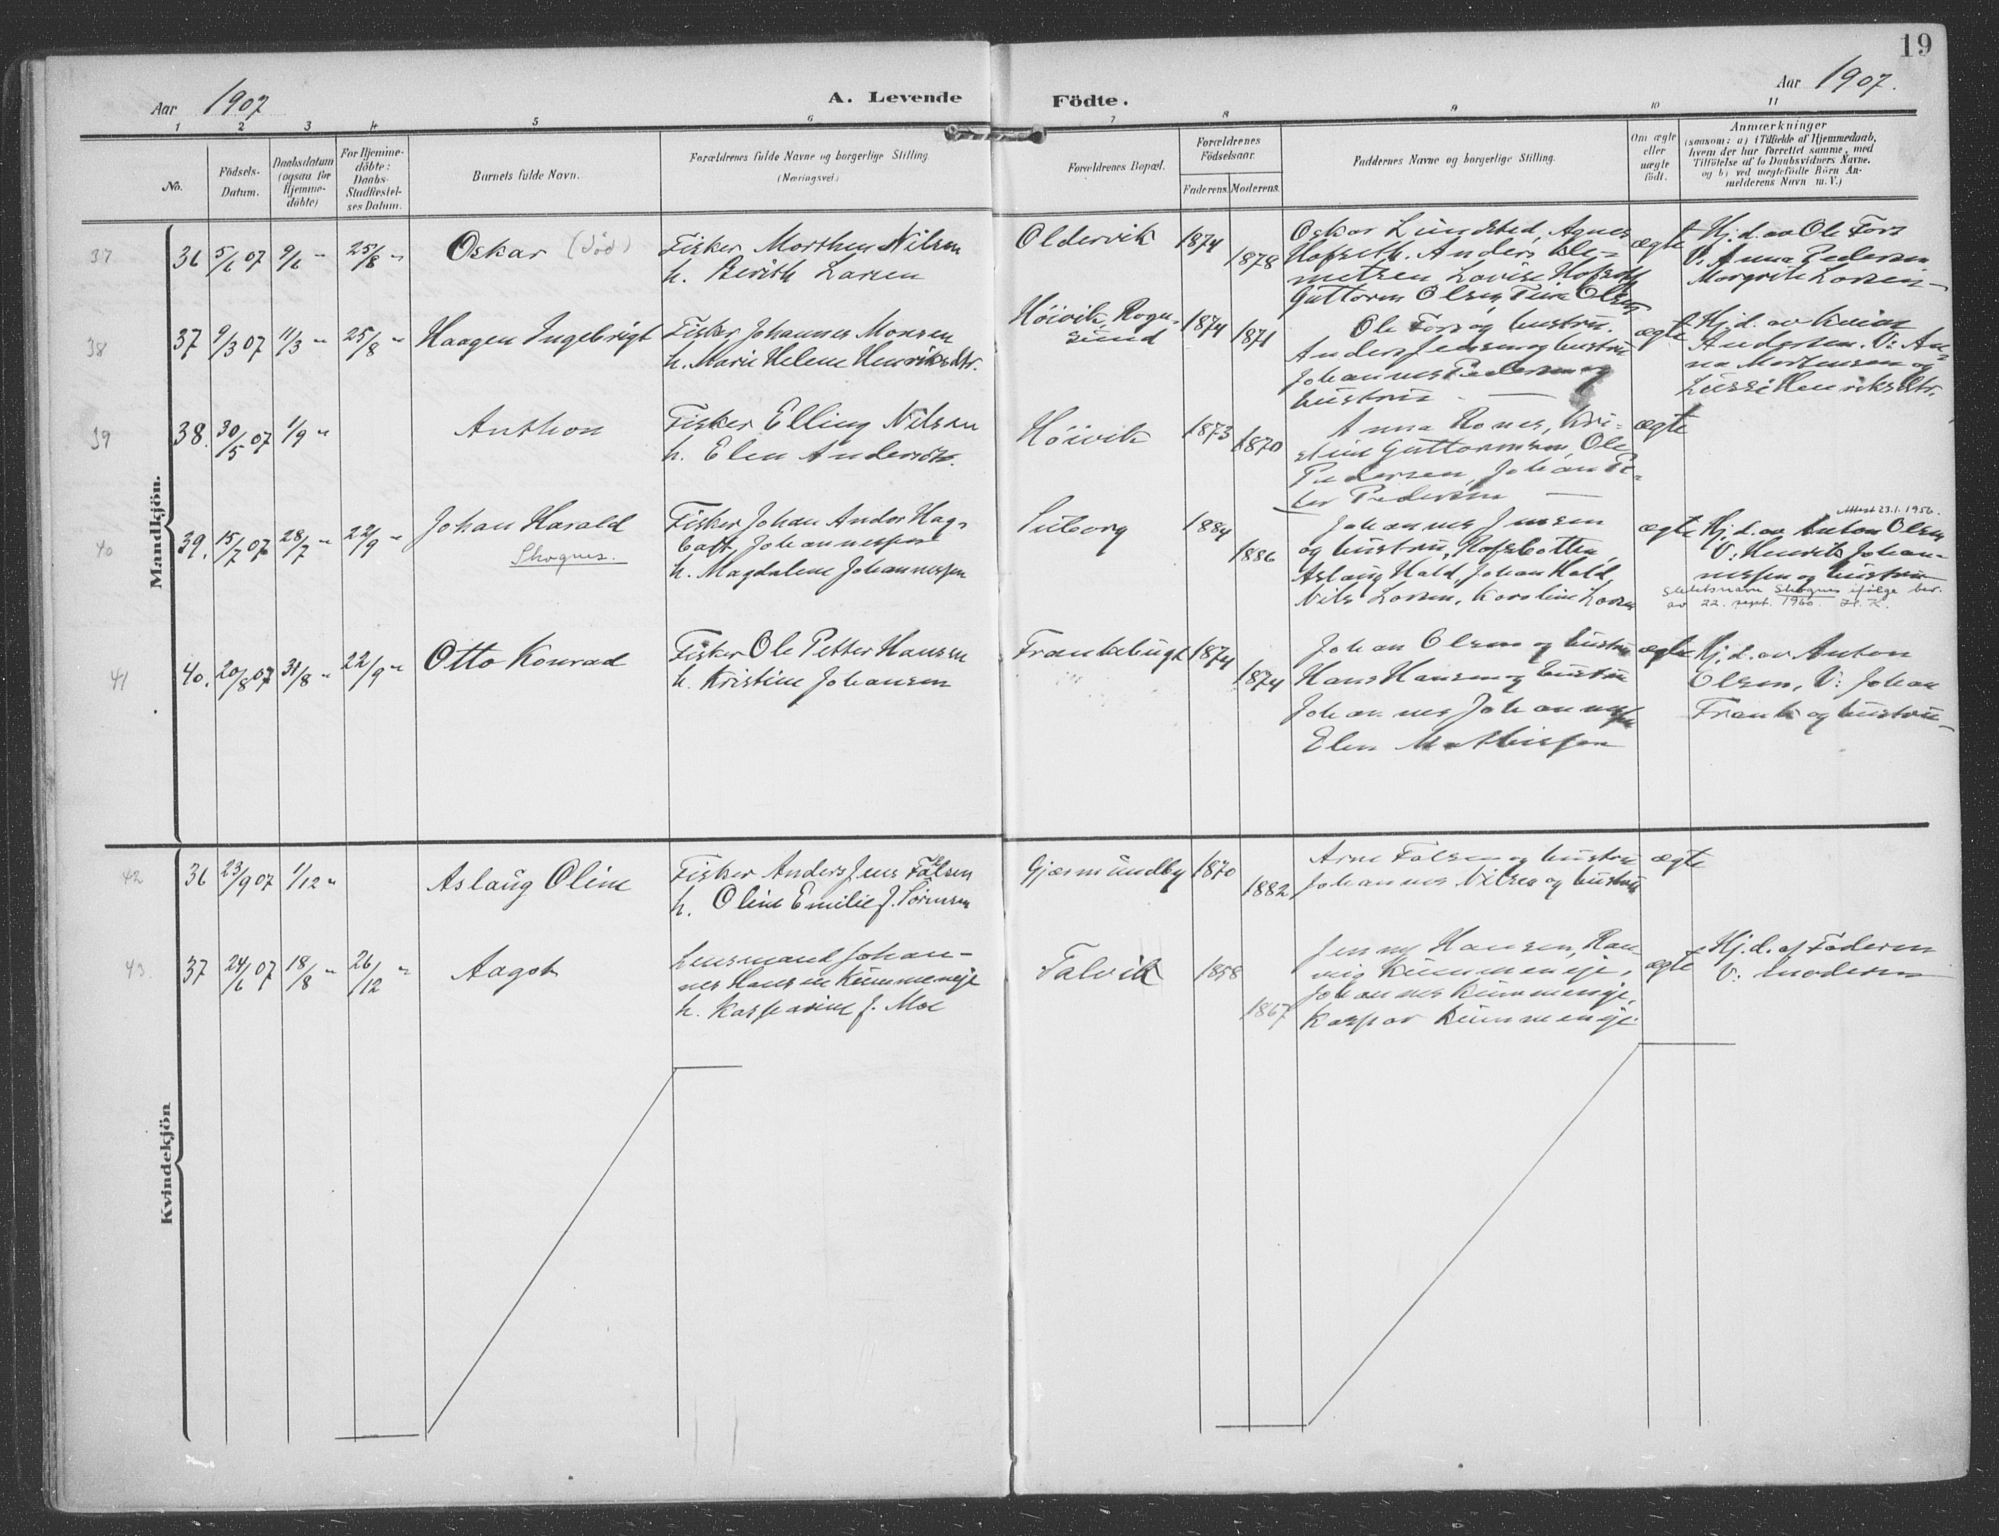 19
Aar 1907
A. Levende
Födte.
Aar 1907.
1 2 3 4 5 6 7 8 9 10 11
No.
Födsels-
Datum.
Daabsdatum
(ogsaa for
Hjemme-
döbte)
For Hjemme-
döbte:
Daabs-
Stadfæstel-
ses Datum.
Barnets fulde Navn.
Forældrenes fulde Navne og borgerlige Stilling.
(Næringsvei.)
Forældrenes Bopæl.
Forældrenes
Födselsaar.
Faderens. Moderens.
Faddernes Navne og borgerlige Stilling.
Om ægte
eller
uægte
födt.
Anmærkninger
(saasom: a) i Tilfælde af Hjemmedaab,
hvem der har forrettet samme, med
Tilföielse af to Daabsvidners Navne.
og b) ved uægtefödte Börn An-
melderens Navn m. V.)
Mandkjön.
37
36 5/6 07 9/6 " 25/8 "
Oskar (död)
Fisker Morthen Nilsen
h. Berith Larsen
Oldervik
1874
1878
Oskar Lundsted, Agnes
Hofseth. Anders Kle-
metsen Lovise Hofseth
Guttorm Olsen Tine Olsen
ægte
Hj. d. av Ole Fors
V: Anna Pedersen
Margrete Larsen
38
37 9/3 07 11/3 " 25/8 "
Haagen Ingebrigt
Fisker Johannes Monsen
h. Marie Helene Henriksdtr.
Höivik, Rogn-
sund
1874
1871
Ole Fors og hustru.
Anders Jensen og hustru
Johannes Pedersen og
hustru
ægte
Hj. d. av
Andersen. V: An-
na Mortensen og
Lussi Henriksdtr.
39
38. 30/5 07 1/9 "
Anthon
Fisker Elling Nilsen
h. Elen Andersdtr.
Höivik
1873
1870
Anna Rones, Kri-
stine Guttormsen, Ole
Pedersen, Johan Pe-
ter Pedersen
ægte
40
39. 15/7 07 28/7 " 22/9 "
Johan Harald
Skognes.
Fisker Johan Andor Hag-
baft Johannessen
h. Magdalene Johannessen
Suborg
1884
1886
Johannes Jensen
og hustru, Rafsbotten
Aslaug Hald, Johan Hald,
Nils Larsen, Karoline Larsen
ægte
Attest 23.1.1956.
Hj. d. av Anton Olsen
V: Henrik Johan-
nessen og hustru
Slektsnavn Skognes ifølge bev.
av 22. sept. 1960. H. K.
41
40. 20/8 07 31/8 " 22/9 "
Otto Konrad
Fisker Ole Petter Hansen
h. Kristine Johansen
Frankabugt
1874
1874
Johan Olsen og hustru
Hans Hansen og hustru
Johannes Johannessen
Elen Mathissen
ægte
Hj. d. av Anton
Olsen, V: Johan
Frank og hustru
Kvindekjön
42
36 23/9 07 1/12 "
Aslaug Oline
Fisker Anders Jens Falsen
h. Oline Emilie f. Sörensen
Gjærmundby
1870
1882
Arne Falsen og hustru
Johannes Nilsen og hustru
ægte
43.
37 24/6 07 18/8 " 26/12 "
Aagot
Lensmand Johan-
nes Hansen Kummeneje
h. Kasparine f. Moe
Talvik
1858
1867
Jenny Hansen, Ran-
veig Kummeneje,
Johannes Kummeneje,
Kaspar Kummeneje
ægte
Hj. d. af Faderen
V: moderen